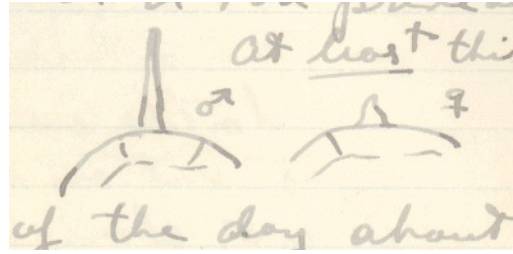 at least thi
♂ ♀
of the day about